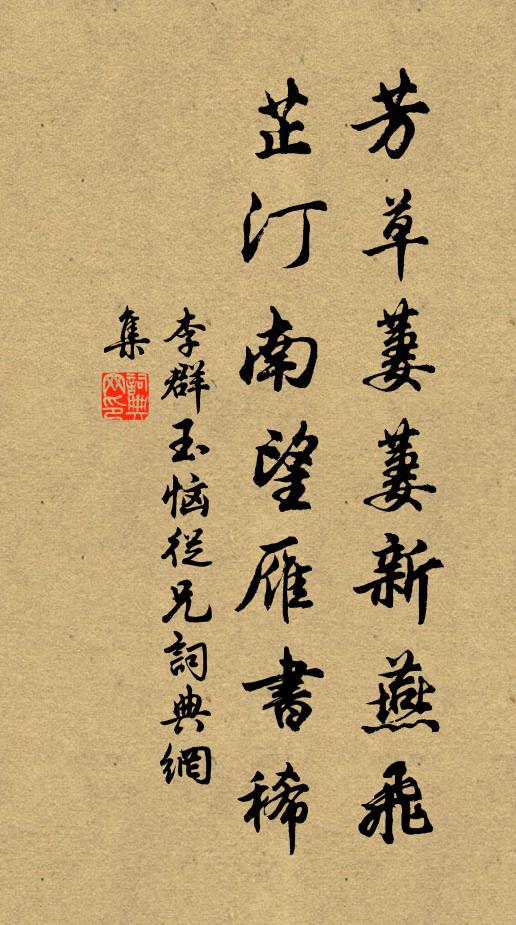 芳草萋萋新燕飛
芷汀南望雁書稀
李群玉恼從兄詞典網
集
詞典网印